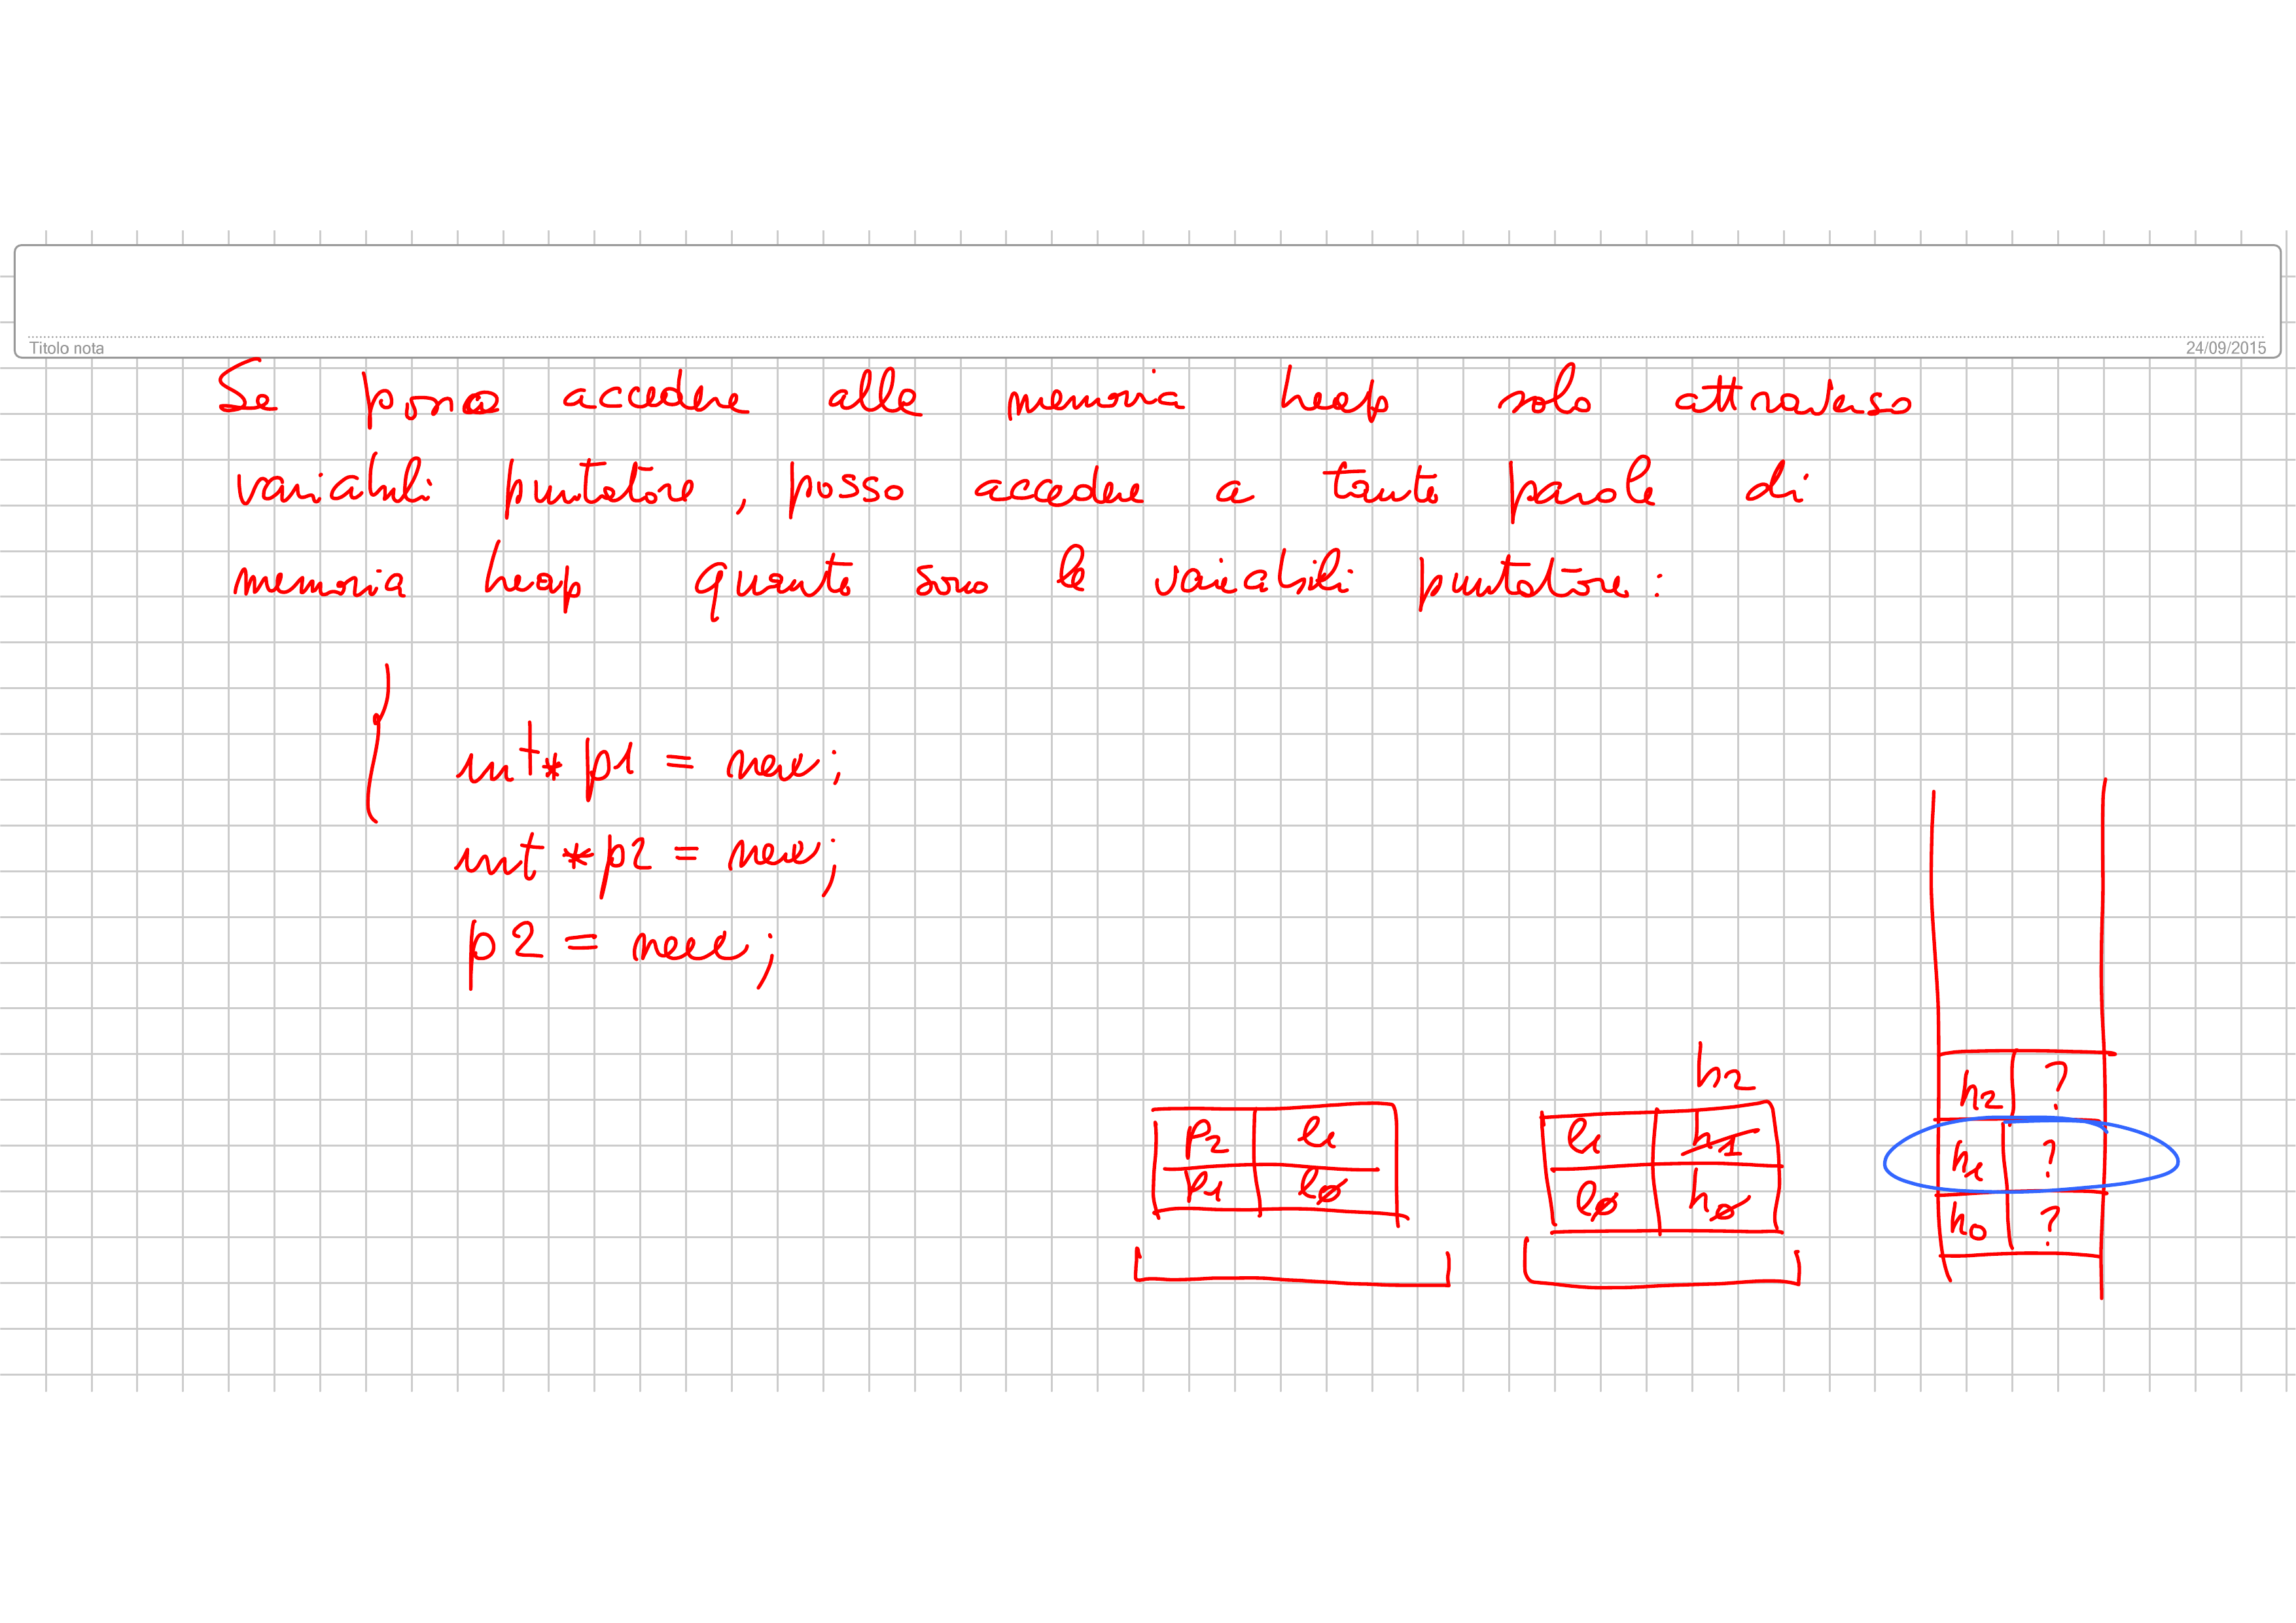 Titolo nota
24/09/2015
Se posso accedere alla memoria heap solo attraverso
variabili puntatore, posso accedere a tante parole di
memoria heap quante sono le variabili puntatore:
int* p1 = new;
int *p2 = new;
p2 = new;
h2
p2 l1 l1 h1 h2 ?
p1 l0 l0 h0 h1 ?
h0 ?